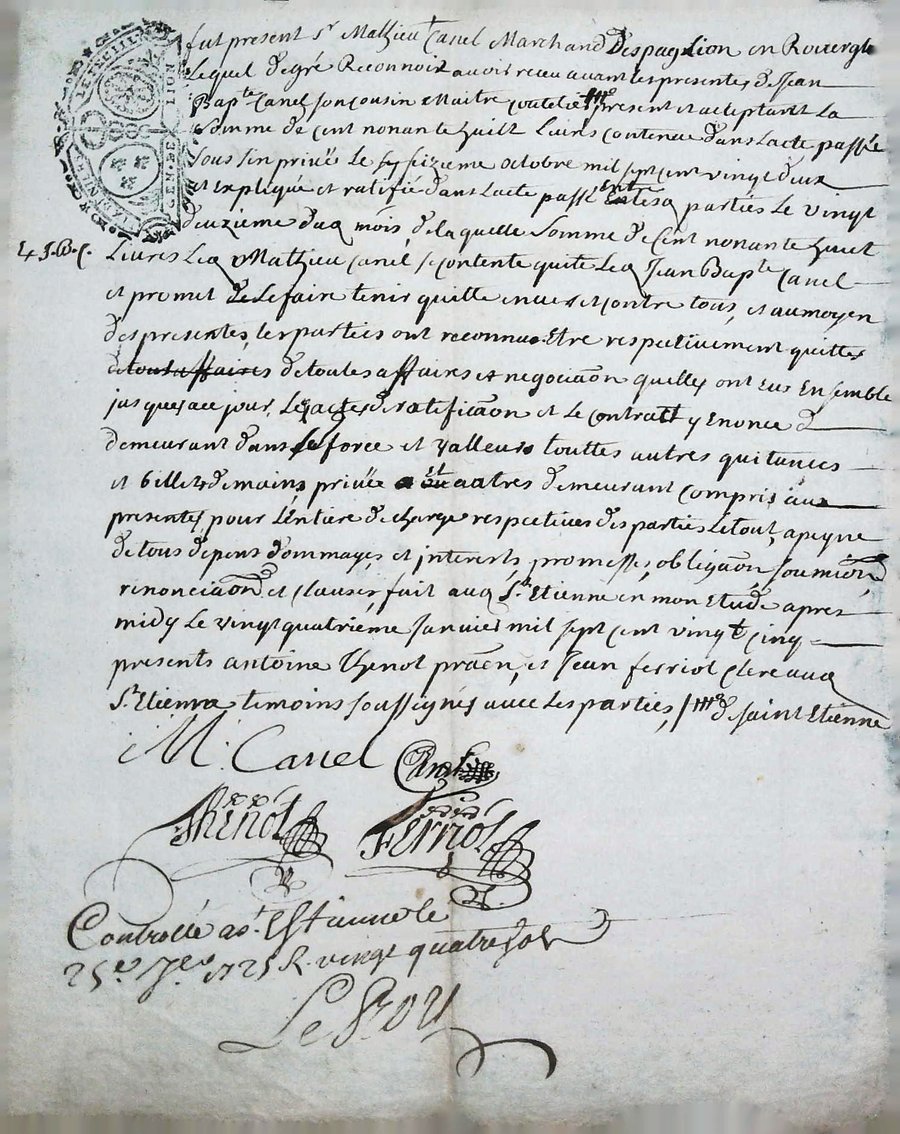 fut present Sr Mathieu Canel Marchand Despaglion en Rouergue
Lequel de gré Reconnoit avoir receu avant les presentes de Jean
Bapte Canel son cousin Maitre present et acceptant La
somme de cent nonante huit Livres contenue dans Lacte passée
sous sin privée Le seizieme octobre mil sept cent vingt deux
et expliqué et ratifiée dans Lacte passé Entre parties Le vingt
deuzieme mois, de laquelle somme de cent nonante huit
Livres Led Mathieu Canel se contente quite Led Jean Bapte Canel
et promet de Le faire tenir quitte envers et contre tous, et au moyen
des presentes, les parties ont reconnus Etre respectivement quittes
de tous affaires de toutes affaires et negociaon quelles ont eus Ensemble
jusques a ce jour, de ratificaon et Le contratt y Enoncé
demeurant dans force et valleur touttes autres quitances
et billets de mains privée autres demeurant compris aux
presentes pour Lentiere decharge respectives des parties Le tout, a peyne
de tous depens dommages, et interests, promesses, obligaon, soumion
renonciaon et clauses, fait aud St Etienne en mon Etude apres
midy Le vingt quatriéme Janvier mil sept cent vingt cinq
presents antoine Thenot praen, et Jean ferriol Clerc aud
St Etienne temoins soussignés avec Les parties, de saint Etienne
M. Canel
Canel
Thenot
Ferriol
Controllé a St Estienne le
25e 1725 R. vingt quatre sols
LeRoy